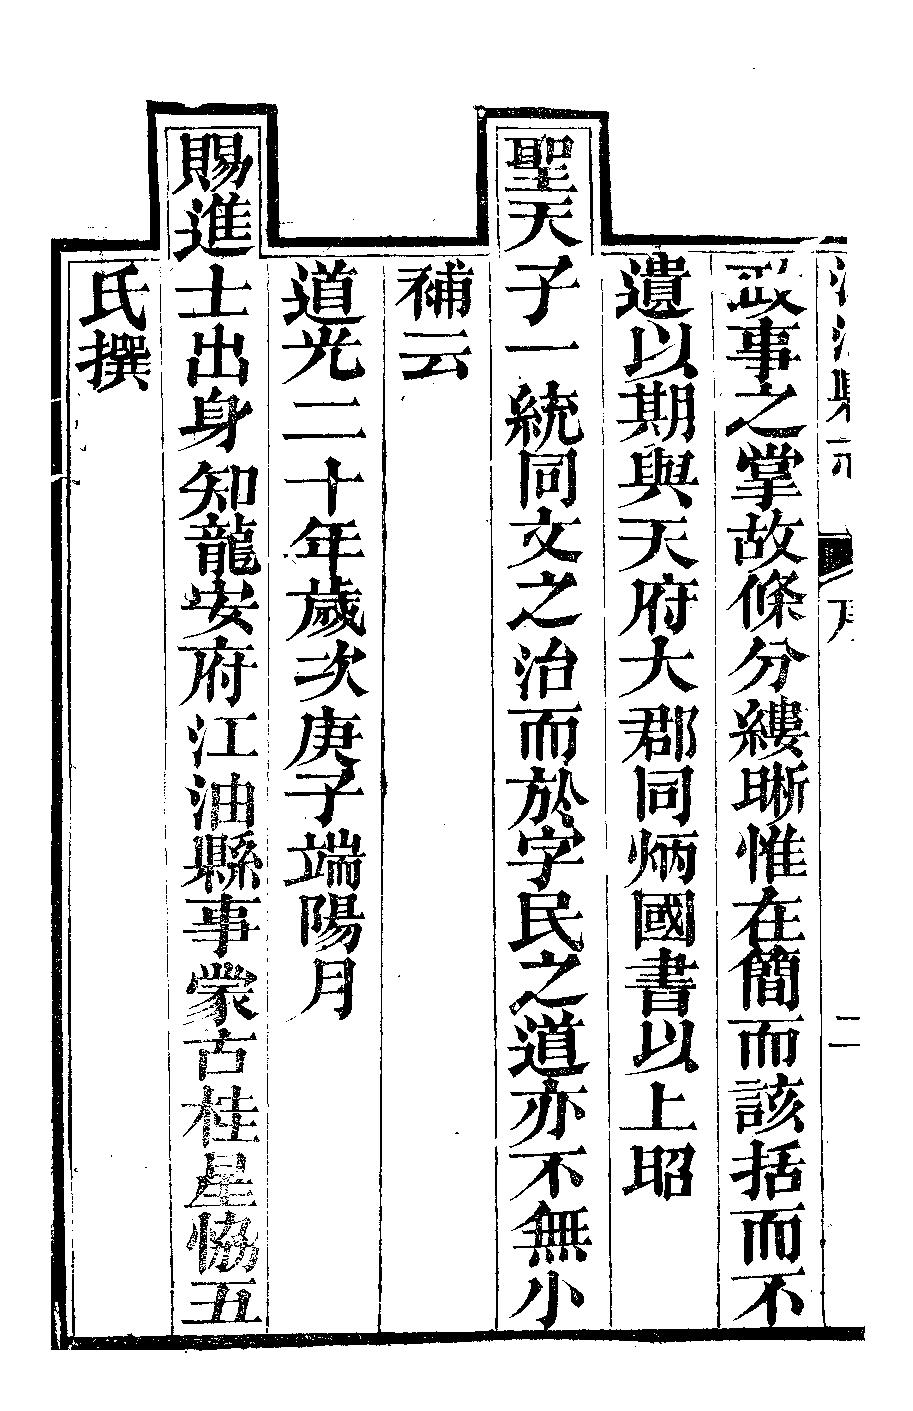 二
政事之掌故條分縷晰惟在簡而該括而不
遺以期與天府大郡同炳國書以上昭
聖天子一統同文之治而於字民之道亦不無小
補云
道光二十年歲次庚子端陽月
賜進士出身知龍安府江油縣事蒙古桂星恊五
氏撰